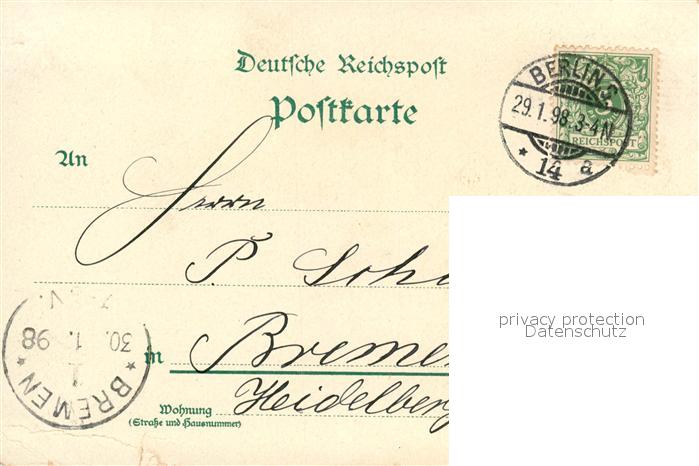 Deutsche Reichspost
Postkarte
BERLIN S.
29.1.98.3-4N
* 14 a
REICHSPOST
An
Herrn
P. Sch
privacy protection
Datenschutz
30. 1. 98
1
* BREMEN *
in Breme
Heidelberg
Wohnung
(Straße und Hausnummer)